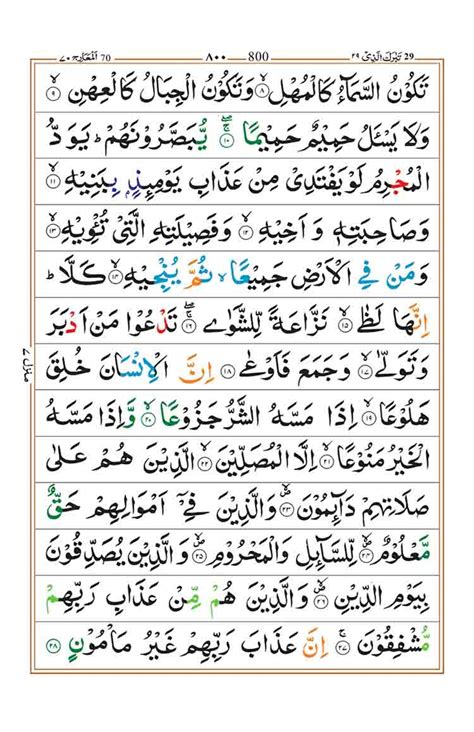 29 تَبٰرَكَ الَّذِىْ ٢٩ 800 ٨٠٠ 70 اَلْمَعَارِج ٧٠
تَكُوْنُ السَّمَآءُ كَالْمُهْلِ ۙ‏﴿۸﴾ وَتَكُوْنُ الْجِبَالُ كَالْعِهْنِ ۙ‏﴿۹﴾
وَلَا يَسْـَٔلُ حَمِيْمٌ حَمِيْمًا ۖۚ‏﴿۱۰﴾ يُّبَصَّرُوْنَهُمْ‌ؕ يَوَدُّ
الْمُجْرِمُ لَوْ يَفْتَدِىْ مِنْ عَذَابِ يَوْمِٮِٕذٍۢ بِبَنِيْهِ ۙ‏﴿۱۱﴾
وَ صَاحِبَتِهٖ وَ اَخِيْهِ ۙ‏﴿۱۲﴾ وَفَصِيْلَتِهِ الَّتِىْ تُــْٔوِيْهِ ۙ‏﴿۱۳﴾
وَمَنْ فِى الْاَرْضِ جَمِيْعًا ۙ ثُمَّ يُنْجِيْهِ ۙ‏﴿۱۴﴾ كَلَّا ؕ
اِنَّهَا لَظٰى ۙ‏﴿۱۵﴾ نَزَّاعَةً لِّلشَّوٰى‌ ۖۚ‏﴿۱۶﴾ تَدْعُوْا مَنْ اَدْبَرَ
وَتَوَلّٰى ۙ‏﴿۱۷﴾ وَجَمَعَ فَاَوْعٰى‏﴿۱۸﴾ اِنَّ الْاِنْسَانَ خُلِقَ
هَلُوْعًا ۙ‏﴿۱۹﴾ اِذَا مَسَّهُ الشَّرُّ جَزُوْعًا ۙ‏﴿۲۰﴾ وَّاِذَا مَسَّهُ
الْخَيْرُ مَنُوْعًا ۙ‏﴿۲۱﴾ اِلَّا الْمُصَلِّيْنَ ۙ‏﴿۲۲﴾ الَّذِيْنَ هُمْ عَلٰى
صَلَاتِهِمْ دَآٮِٕمُوْنَ ۙ‏﴿۲۳﴾ وَالَّذِيْنَ فِىْۤ اَمْوَالِهِمْ حَقٌّ
مَّعْلُوْمٌ ۙ‏﴿۲۴﴾ لِّلسَّآٮِٕلِ وَالْمَحْرُوْمِ ۙ‏﴿۲۵﴾ وَالَّذِيْنَ يُصَدِّقُوْنَ
بِيَوْمِ الدِّيْنِ ۙ‏﴿۲۶﴾ وَالَّذِيْنَ هُمْ مِّنْ عَذَابِ رَبِّهِمْ
مُّشْفِقُوْنَ‌ ۚ‏﴿۲۷﴾ اِنَّ عَذَابَ رَبِّهِمْ غَيْرُ مَاْمُوْنٍ‏﴿۲۸﴾
منزل ٧